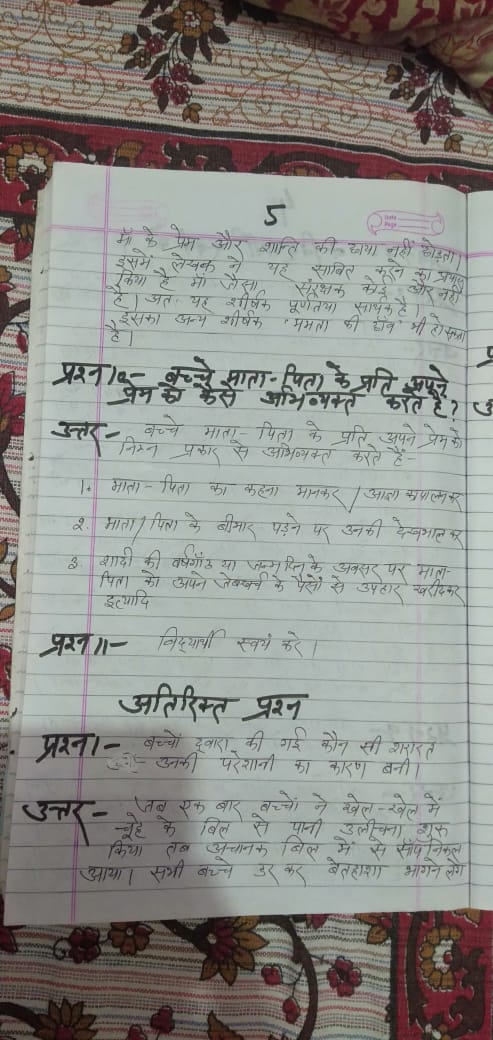 5
Date
Page
माँ के प्रेम और शान्ति की छाया नहीं छोड़ता।
इसमें लेखक ने यह साबित करने का प्रयास
किया है माँ जैसा सुरक्षक कोई और नहीं
है। अतः यह शीर्षक पूर्णतया सार्थक है।
इसका अन्य शीर्षक 'ममता की छाँव' भी हो सकता
है।
प्रश्न 10- बच्चे माता-पिता के प्रति अपने
प्रेम को कैसे अभिव्यक्त करते है?
उत्तर- बच्चे माता-पिता के प्रति अपने प्रेम को
निम्न प्रकार से अभिव्यक्त करते हैं-
1. माता-पिता का कहना मानकर / आज्ञा का पालन कर
2. माता/पिता के बीमार पड़ने पर उनकी देखभाल कर
3. शादी की वर्षगाँठ या जन्मदिन के अवसर पर माता-
पिता को अपने जेबखर्च के पैसों से उपहार खरीदकर
इत्यादि
प्रश्न 11- विद्यार्थी स्वयं करे।
अतिरिक्त प्रश्न
प्रश्न 1- बच्चों द्वारा की गई कौन सी शरारत
उनकी परेशानी का कारण बनी।
उत्तर- जब एक बार बच्चों ने खेल-खेल में
चूहे के बिल से पानी उलीचना शुरू
किया तब अचानक बिल में से साँप निकल
आया। सभी बच्चे डर कर बेतहाशा भागने लगे